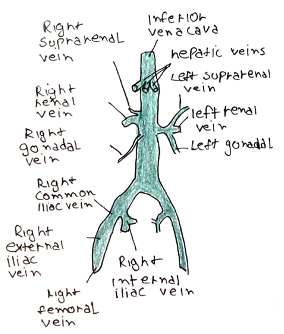 Right
suprarenal
vein
Inferior
vena cava
hepatic veins
Left suprarenal
vein
Right
renal
vein
left renal
vein
Right
gonadal
vein
Left gonadal
Right
common
iliac vein
Right
external
iliac
vein
Right
internal
iliac vein
Right
femoral
vein